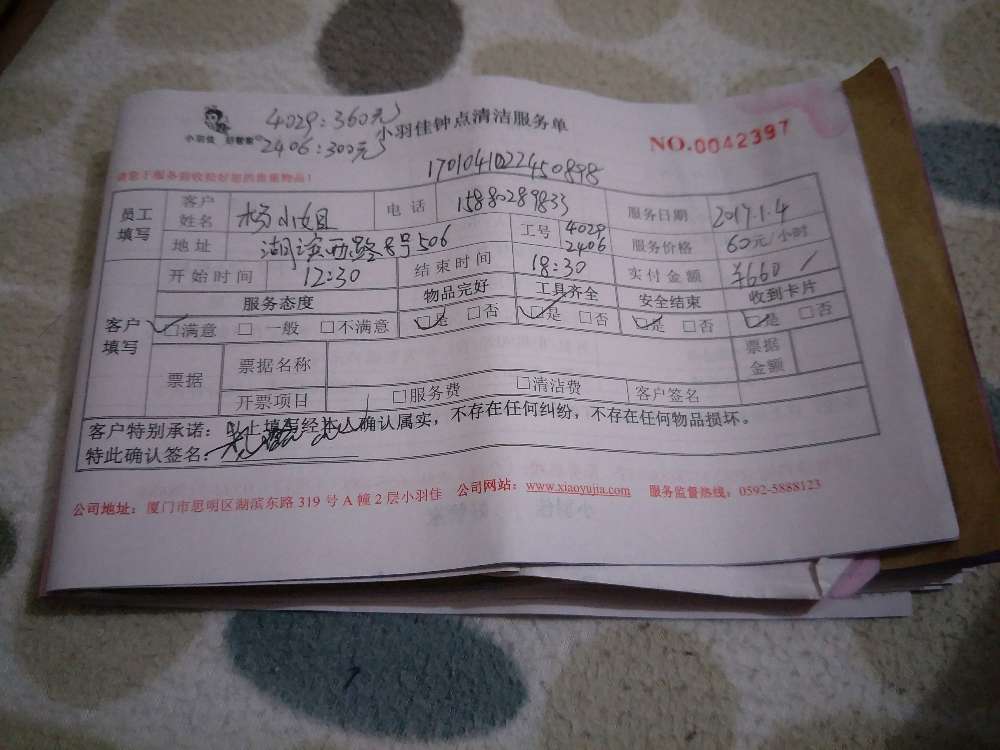 4029:360元
小羽佳 好管家
小羽佳钟点清洁服务单
NO.0042397
2406:300元
170104102245089​8
请您于服务前收检好您的贵重物品!
员工填写 客户姓名 杨小姐 电话 15880289833 服务日期 2017.1.4
地址 湖滨西路8号506 工号 4029 2406 服务价格 60元/小时
开始时间 12:30 结束时间 18:30 实付金额 ¥660
客户填写 服务态度 物品完好 工具齐全 安全结束 收到卡片
□满意 □一般 □不满意 □是 □否 □是 □否 □是 □否 □是 □否
票据 票据名称 票据金额
开票项目 □服务费 □清洁费 客户签名
客户特别承诺:以上填写经本人确认属实,不存在任何纠纷,不存在任何物品损坏。
特此确认签名:
公司地址:厦门市思明区湖滨东路319号A幢2层小羽佳 公司网站:www.xiaoyujia.com 服务监督热线:0592-5888123